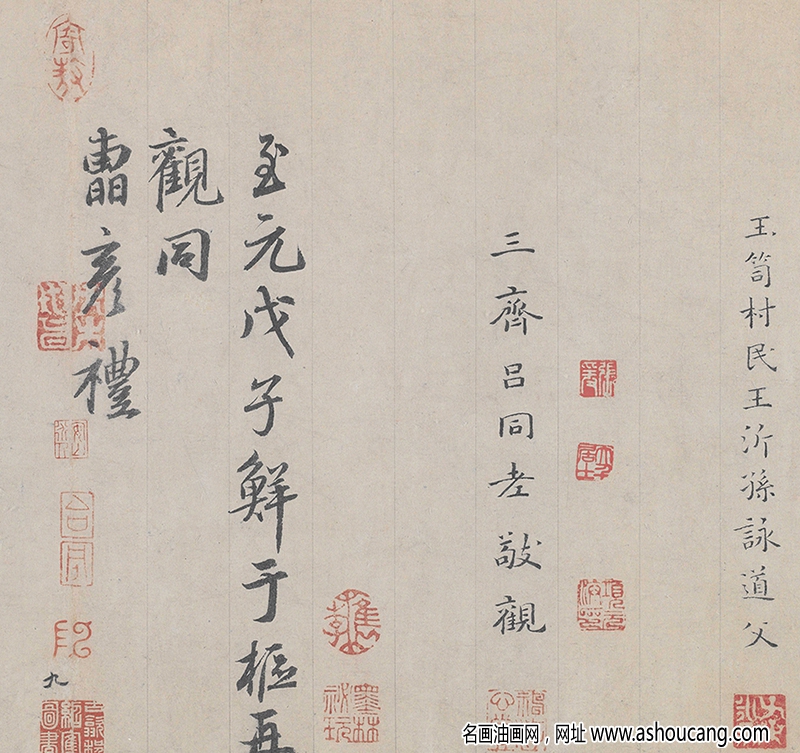 玉笥村民王沂孫詠道父
三齊呂同老敬觀
至元戊子鮮于樞再
觀同
曹彥禮
九
名画油画网，网址 www.ashoucang.com